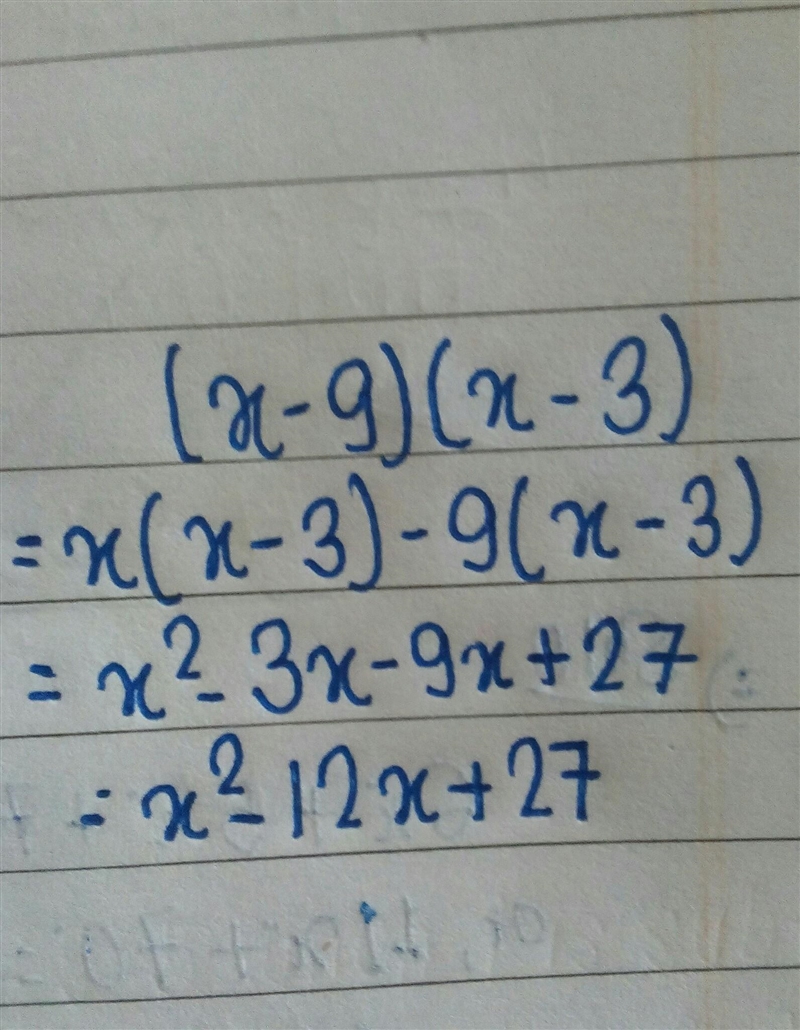 (x-9)(x-3)
=x(x-3)-9(x-3)
= x²-3x-9x+27
= x²-12x+27